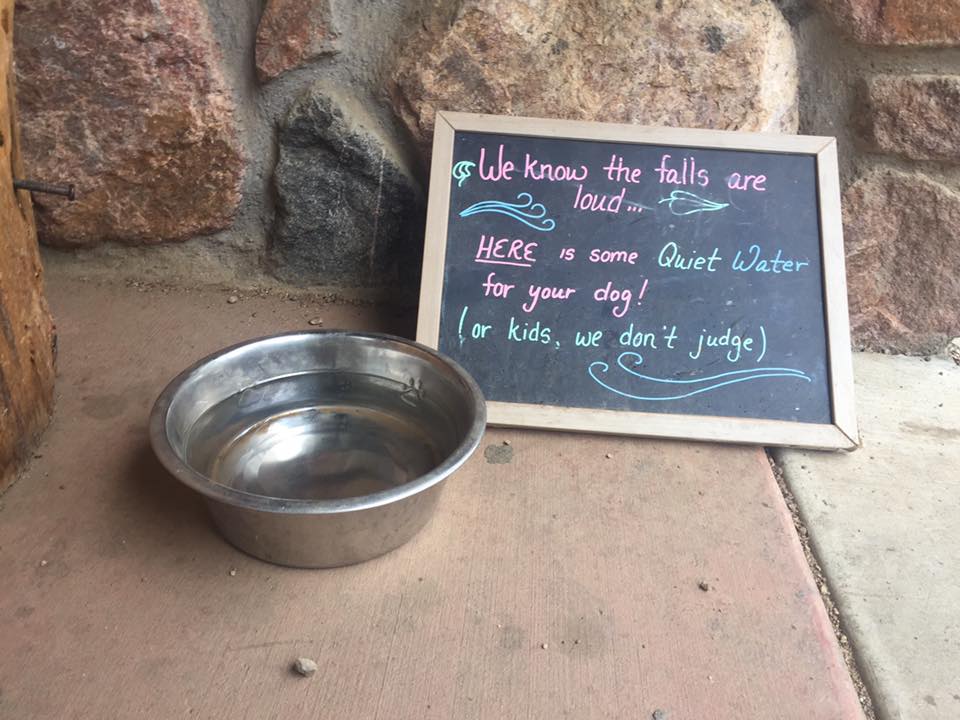 We know the falls are
loud...
HERE is some Quiet Water
for your dog!
(or kids, we don't judge)